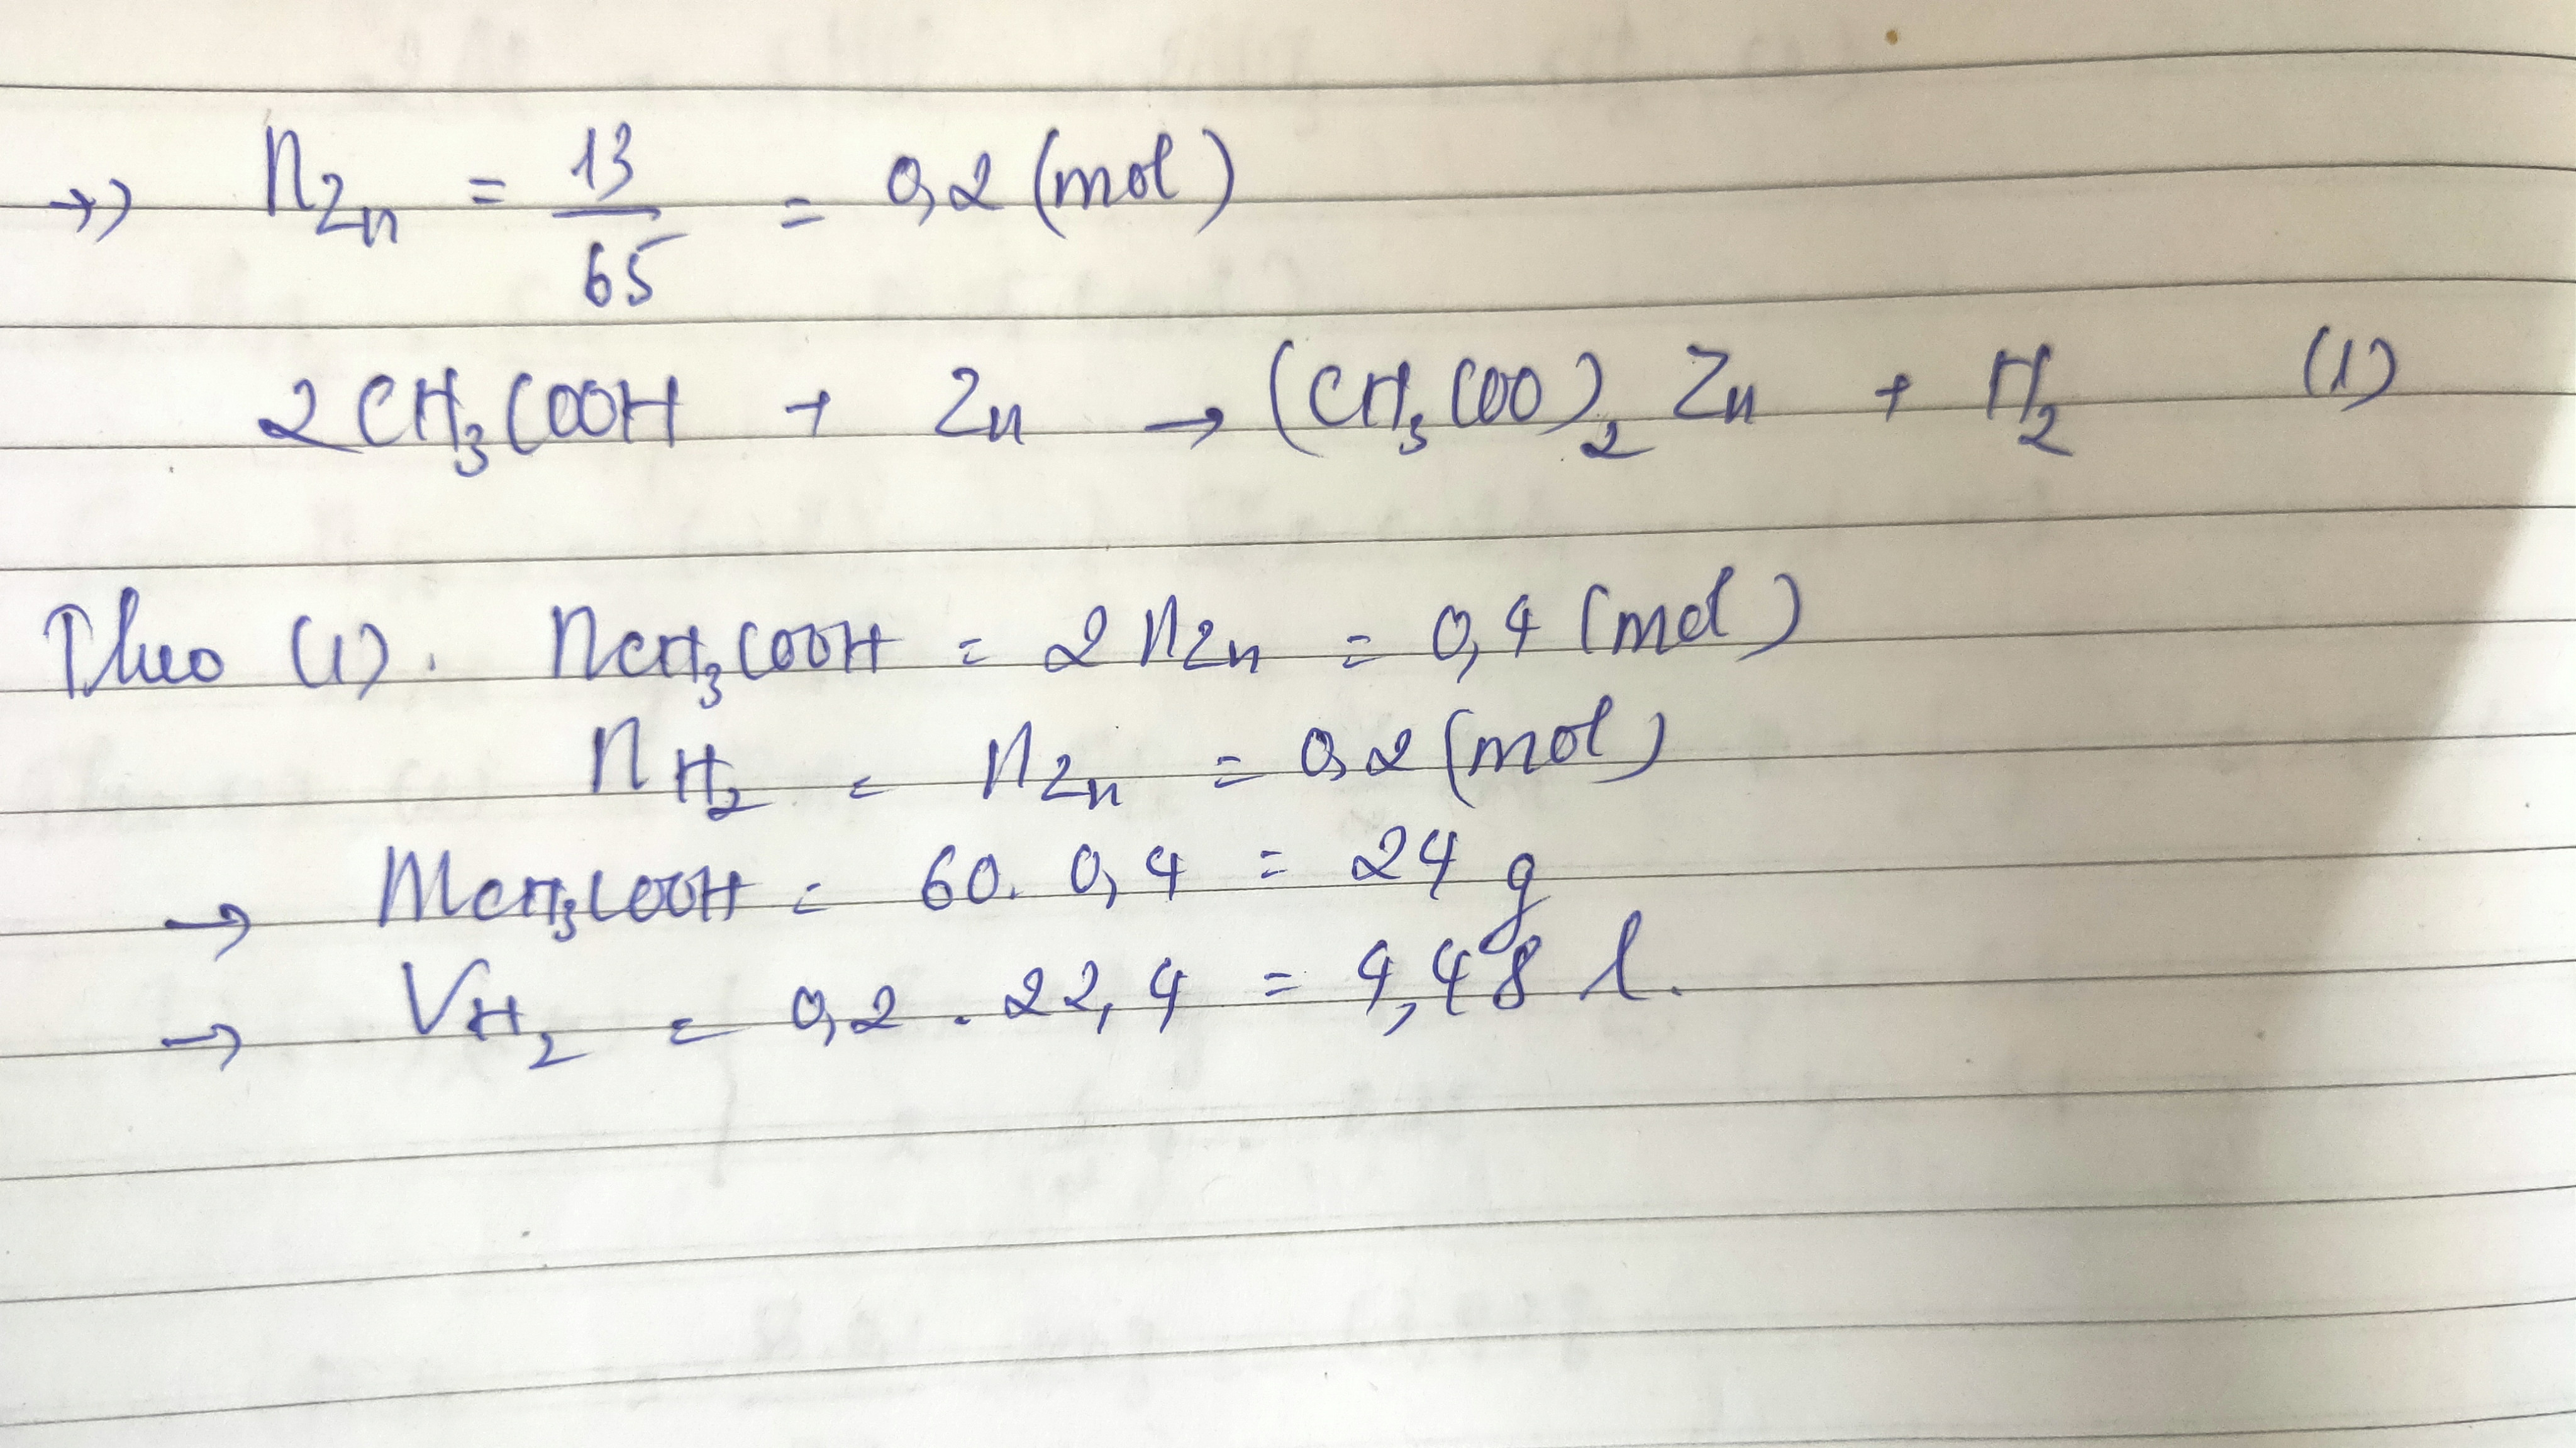 → n_Zn = 13/65 = 0,2 (mol)
2CH₃COOH + Zn → (CH₃COO)₂Zn + H₂ (1)
Theo (1). n_CH₃COOH = 2n_Zn = 0,4 (mol)
n_H₂ = n_Zn = 0,2 (mol)
→ m_CH₃COOH = 60. 0,4 = 24 g
→ V_H₂ = 0,2 . 22,4 = 4,48 l.